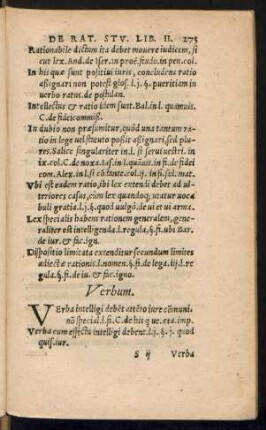 DE RAT. STV. LIB. II. 275
Rationabile dictum ita debet mouere iudicem, si
cut lex. And. de Iser. in proē. feudo. in pen. col.
In his quæ sunt positiui iuris, concludens ratio
assignari non potest glos. l. j. §. pueritiam in
uerbo ratus. de postulan.
Intellectus & ratio idem sunt. Bal. in l. quamuis.
C. de fideicommiss.
In dubio non præsumitur, quòd una tantum ra-
tio in lege uel statuto possit assignari, sed plu-
res. Salice singulariter in l. si serui uestri. in
ix. col. C. de noxa. & as. in l. quāuis. in fi. de fidei
com. Alex. in l. si cōstante. col. ij. in fi. sol. mat.
Vbi est eadem ratio, ibi lex extendi debet ad ul-
teriores casus, cùm lex quandoq; utatur uoca
buli gratia. l. j. §. quod uulgò. de ui et ui arma.
Lex specialis habens rationem generalem, gene-
raliter est intelligenda. l. regula. §. fi. ubi Bar.
de iur. & fac. ign.
Dispositio limitata extenditur secundum limites
adiectæ rationis. l. nomen. §. fi. de lega. iij. l. re
gula. §. fi. de iu. & fac. igno.
Verbum.
VErba intelligi debēt attēto iure cōmuni
nō speciali. l. fi. C. de his q ue. æta. imp.
Verba cum effectu intelligi debent. l. j. §. j. quod
quisq. iur.
S ij Verba